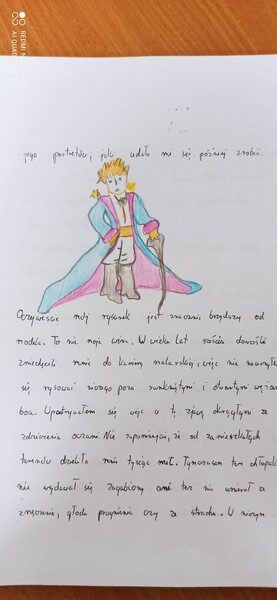 REDMI NO
AI QUAD
jego portretów, jak udało mi się później zrobić.
Oczywiście mój rysunek jest znacznie brzydszy od
modela. To nie moja wina. W wieku lat sześciu dorośli
zniechęcili mnie do kariery malarskiej, więc nie nauczyłem
się rysować niczego poza zamkniętymi i otwartymi wężami
boa. Wpatrywałem się więc w tę zjawę okrągłymi ze
zdziwienia oczami. Nie zapominajcie, że od zamieszkałych
terenów dzieliło mnie tysiąc mil. Tymczasem ten chłopak
nie wydawał się zagubiony ani też nie umierał ze
zmęczenia, głodu pragnienia czy ze strachu. W niczym